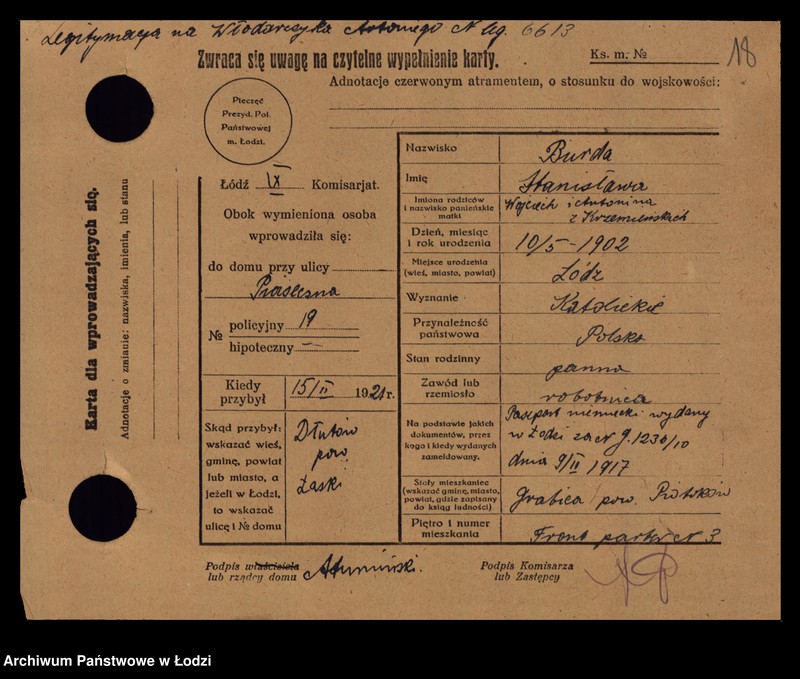 Legitymacja na Włodarczyka Antoniego N leg. 6613
Zwraca się uwagę na czytelne wypełnienie karty.
Ks. m. №
18
Adnotacje czerwonym atramentem, o stosunku do wojskowości:
Pieczęć
Prezyd. Pol.
Państwowej
m. Łodzi.
Karta dla wprowadzających się.
Adnotacje o zmianie: nazwiska, imienia, lub stanu
Łódź IX Komisarjat.
Obok wymieniona osoba
wprowadziła się:
do domu przy ulicy
№ policyjny 19
hipoteczny —
Kiedy przybył 15/II 1921 r.
Skąd przybył:
wskazać wieś,
gminę, powiat
lub miasto, a
jeżeli w Łodzi,
to wskazać
ulicę i № domu
Dłutów
pow.
Łaski
Nazwisko Burda
Imię Stanisława
Imiona rodziców
i nazwisko panieńskie
matki
Wojciech i Antonina
z Krzemieńskich
Dzień, miesiąc
i rok urodzenia
10/5 – 1902
Miejsce urodzenia
(wieś, miasto, powiat)
Łódź
Wyznanie Katolickie
Przynależność
państwowa
Polska
Stan rodzinny panna
Zawód lub
rzemiosło
robotnica
Na podstawie jakich
dokumentów, przez
kogo i kiedy wydanych
zameldowany.
Paszport niemiecki wydany
w Łodzi za N
dnia 9/II 1917
Stały mieszkaniec
(wskazać gminę, miasto,
powiat, gdzie zapisany
do ksiąg ludności)
Grabica pow. Piotrków
Piętro i numer
mieszkania
Front parter N 3
Podpis właściciela
lub rządcy domu
Podpis Komisarza
lub Zastępcy
Archiwum Państwowe w Łodzi